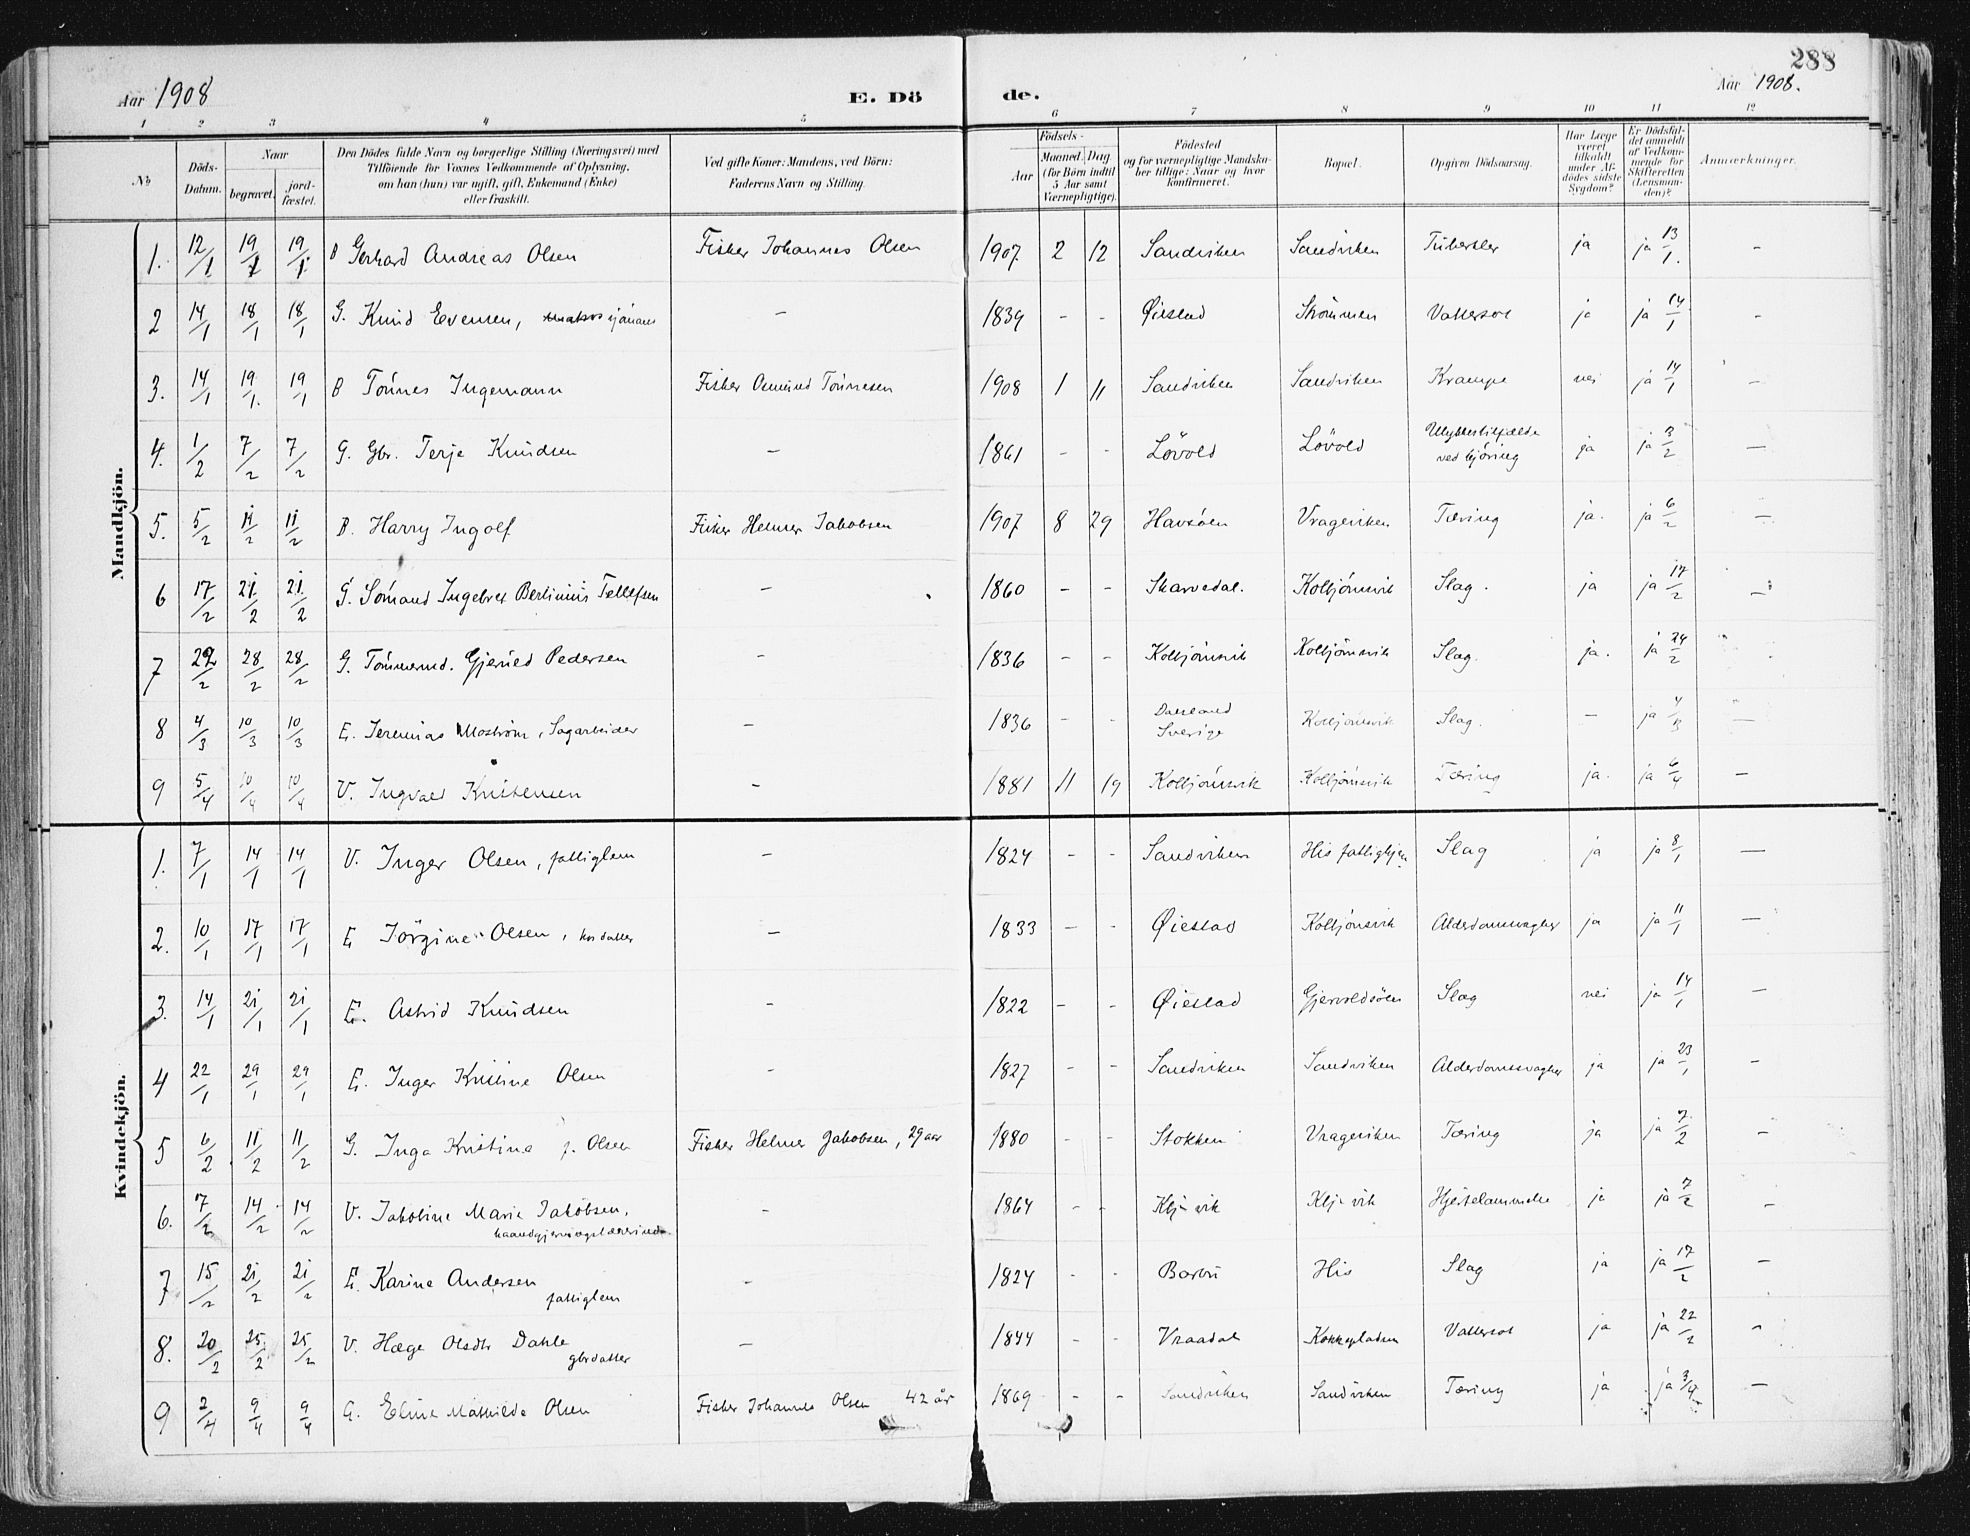 288
Aar 1908
E. Dö
de.
Aar 1908.
1 2 3 4 5 6 7 8 9 10 11 12
No
Döds-Datum.
Naar
begravet.
jord-fæstet.
Den Dödes fulde Navn og borgerlige Stilling (Næringsvei) med
Tilföiende for Voxnes Vedkommende af Oplysning,
om han (hun) var ugift, gift, Enkemand (Enke)
eller fraskilt.
Ved gifte Koner: Mandens, ved Börn:
Faderens Navn og Stilling.
Födsels-
Aar
Maaned. Dag
(for Börn indtil
5 Aar samt
Værnepligtige).
Födested
og for værnepligtige Mandska-
ber tillige: Naar og hvor
konfirmeret.
Bopæl.
Opgiven Dödsaarsag.
Har Læge
været
tilkaldt
under Af-
dödes sidste
Sygdom?
Er Dödsfal-
det anmeldt
af Vedkom-
mende for
Skifteretten
(Lensman-
den)?
Anmærkninger.
Mandkjön.
1. 12/1 19/1 19/1 B Gerhard Andreas Olsen Fisker Johannes Olsen 1907 2 12 Sandviken Sandviken ja ja 13/1. –
2 14/1 18/1 18/1 G. Knud Evensen, – 1839 – – Øiestad ja ja 14/1 –
3. 14/1 19/1. 19/1 B Tönnes Ingemann Fisker Tönnesen 1908 1 11 Sandviken Sandviken Krampe nei ja 14/1 –
4. 1/2 7/2 7/2 G. Gbr. Terje Knudsen – 1861 – – Lövold Lövold Ulykkestilfælde
ved kjöring ja ja 3/2 –
5. 5/2 11/2 11/2 B. Harry Ingolf Fisker Helmer Jakobsen 1907 8 29 Havsöen Vrageviken Tæring ja. ja 6/2 –
6 17/2 21/2 21/2 G. Sömand Ingebret Tellefsen – 1860 – – Skarvedal. Kolbjörnsvik Slag. ja ja 17/2 –
7 22/2 28/2 28/2 G. Tömmermd. Pedersen – 1836 – – Kolbjörnsvik Kolbjörnsvik Slag. ja. ja 24/2
8 4/3 10/3 10/3 E. Jeremias Moström, Sagarbeider – 1836 – – Dalsland
Sverige Kolbjörnsvik Slag. – ja 4/3 –
9 5/4 10/4 10/4 V. Ingvald Kristensen – 1881 11 19 Kolbjörnsvik Kolbjörnsvik Tæring ja. ja 6/4 –
Kvindekjön.
1. 7/1 14/1 14/1 V. Inger Olsen, fattiglem – 1824 – – Sandviken His fattighjem Slag ja ja 8/1 –
2. 10/1 17/1 17/1 E Jörgine Olsen, – 1833 – – Øiestad Kolbjörnsvik Alderdomssvaghet ja ja 11/1 –
3. 14/1 21/1 21/1 E. Astrid Knudsen – 1822 – – Øiestad Gjervoldsöen Slag nei ja 14/1 –
4 22/1 29/1 29/1 E. Inger Kristine Olsen – 1827 – – Sandviken Sandviken Alderdomssvaghet ja ja 23/1 –
5 6/2 11/2 11/2 G. Inga Kristine f. Olsen Fisker Helmer Jakobsen, 29 aar 1880 – – Stokken Vrageviken Tæring ja ja 7/2 –
6. 7/2 14/2 14/2 V. Jakobine Marie Jakobsen,
haandgjerningslærerinde – 1864 – – Klj-vik Klj-vik Hjertelammelse ja ja 7/2 –
7 15/2 21/2 21/2 E. Karine Andersen
fattiglem – 1824 – – Barbu His Slag ja ja 17/2 –
8. 20/2 25/2 25/2 V. Hæge Olsdtr Dahle
gbrdatter – 1844 – – Vraadal Kokkepladsen Vattersot ja ja 22/2 –
9 2/4 9/4 9/4 G. Eline Mathilde Olsen Fisker Johannes Olsen 42 år 1869 – – Sandviken Sandviken Tæring ja ja 3/4. –